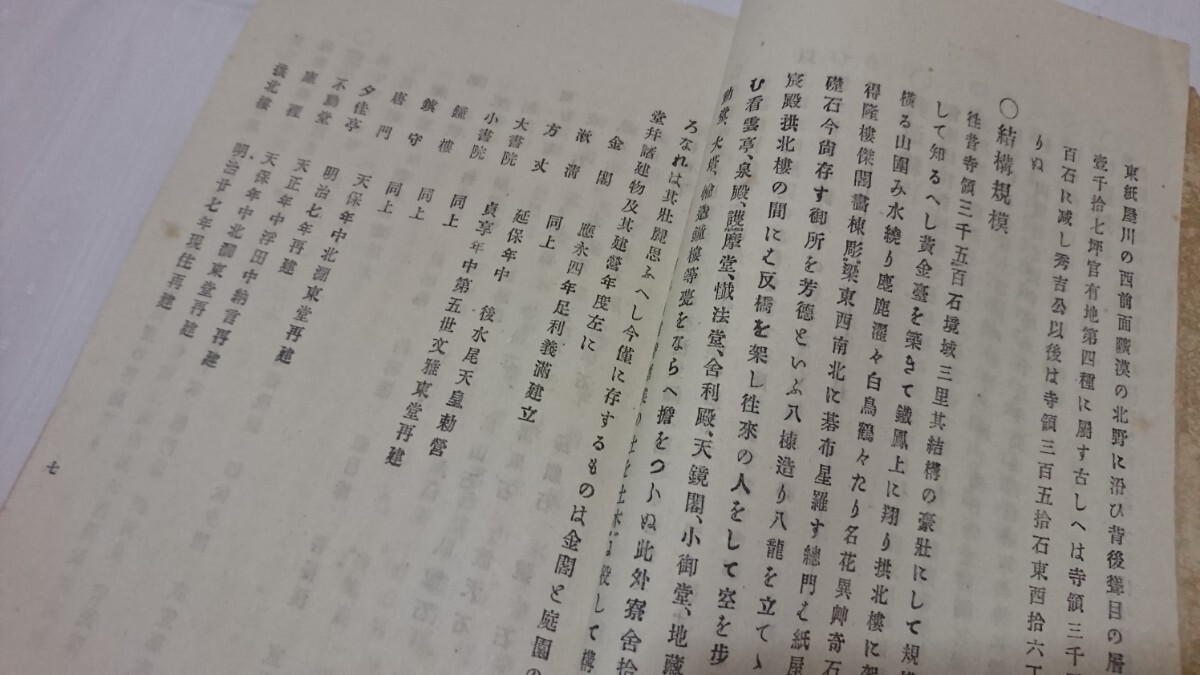 東紙屋川の西前面曠漠の北野に沿ひ背後聳目の層
壹千拾七坪官有地第四種に屬す古しへは寺領三千
百石に减し秀吉公以後は寺領三百五拾石東西拾六丁
りぬ
〇結構規模
徃昔寺領三千五百石境域三里其結構の豪壯にして規模
して知るへし黄金臺を築きて鐵鳳上に翔り拱北樓に架
橫る山圍み水繞り麀鹿濯々白鳥鶴々たり名花異艸奇石
得隆樓傑閣畵棟彫梁東西南北に碁布星羅す總門は紙屋
礎石今尙存す御所を芳德といふ八棟造り八龍を立てゝ
宸殿拱北樓の間には反橋を架し徃來の人をして空を步
む看雲亭、泉殿、護摩堂、懺法堂、舍利殿、天鏡閣、小御堂、地藏
鐘樓等甍をならへ擔をつらぬ此外寮舍拾
して構
ろなれは其壯麗思ふへし今僅に存するものは金閣と庭園の
堂幷諸建物及其建營年度左に
金閣 應永四年足利義滿建立
漱淸 同上
方丈 延保年中 後水尾天皇勅營
大書院 貞享年中第五世文雅東堂再建
小書院 同上
鐘樓 同上
鎭守 同上
唐門 同上
夕佳亭 天保年中北澗東堂再建
不動堂 天正年中浮田中納言再建
庫裡 天保年中北澗東堂再建
拱北樓 明治廿七年現住再建
明治七年再建
七